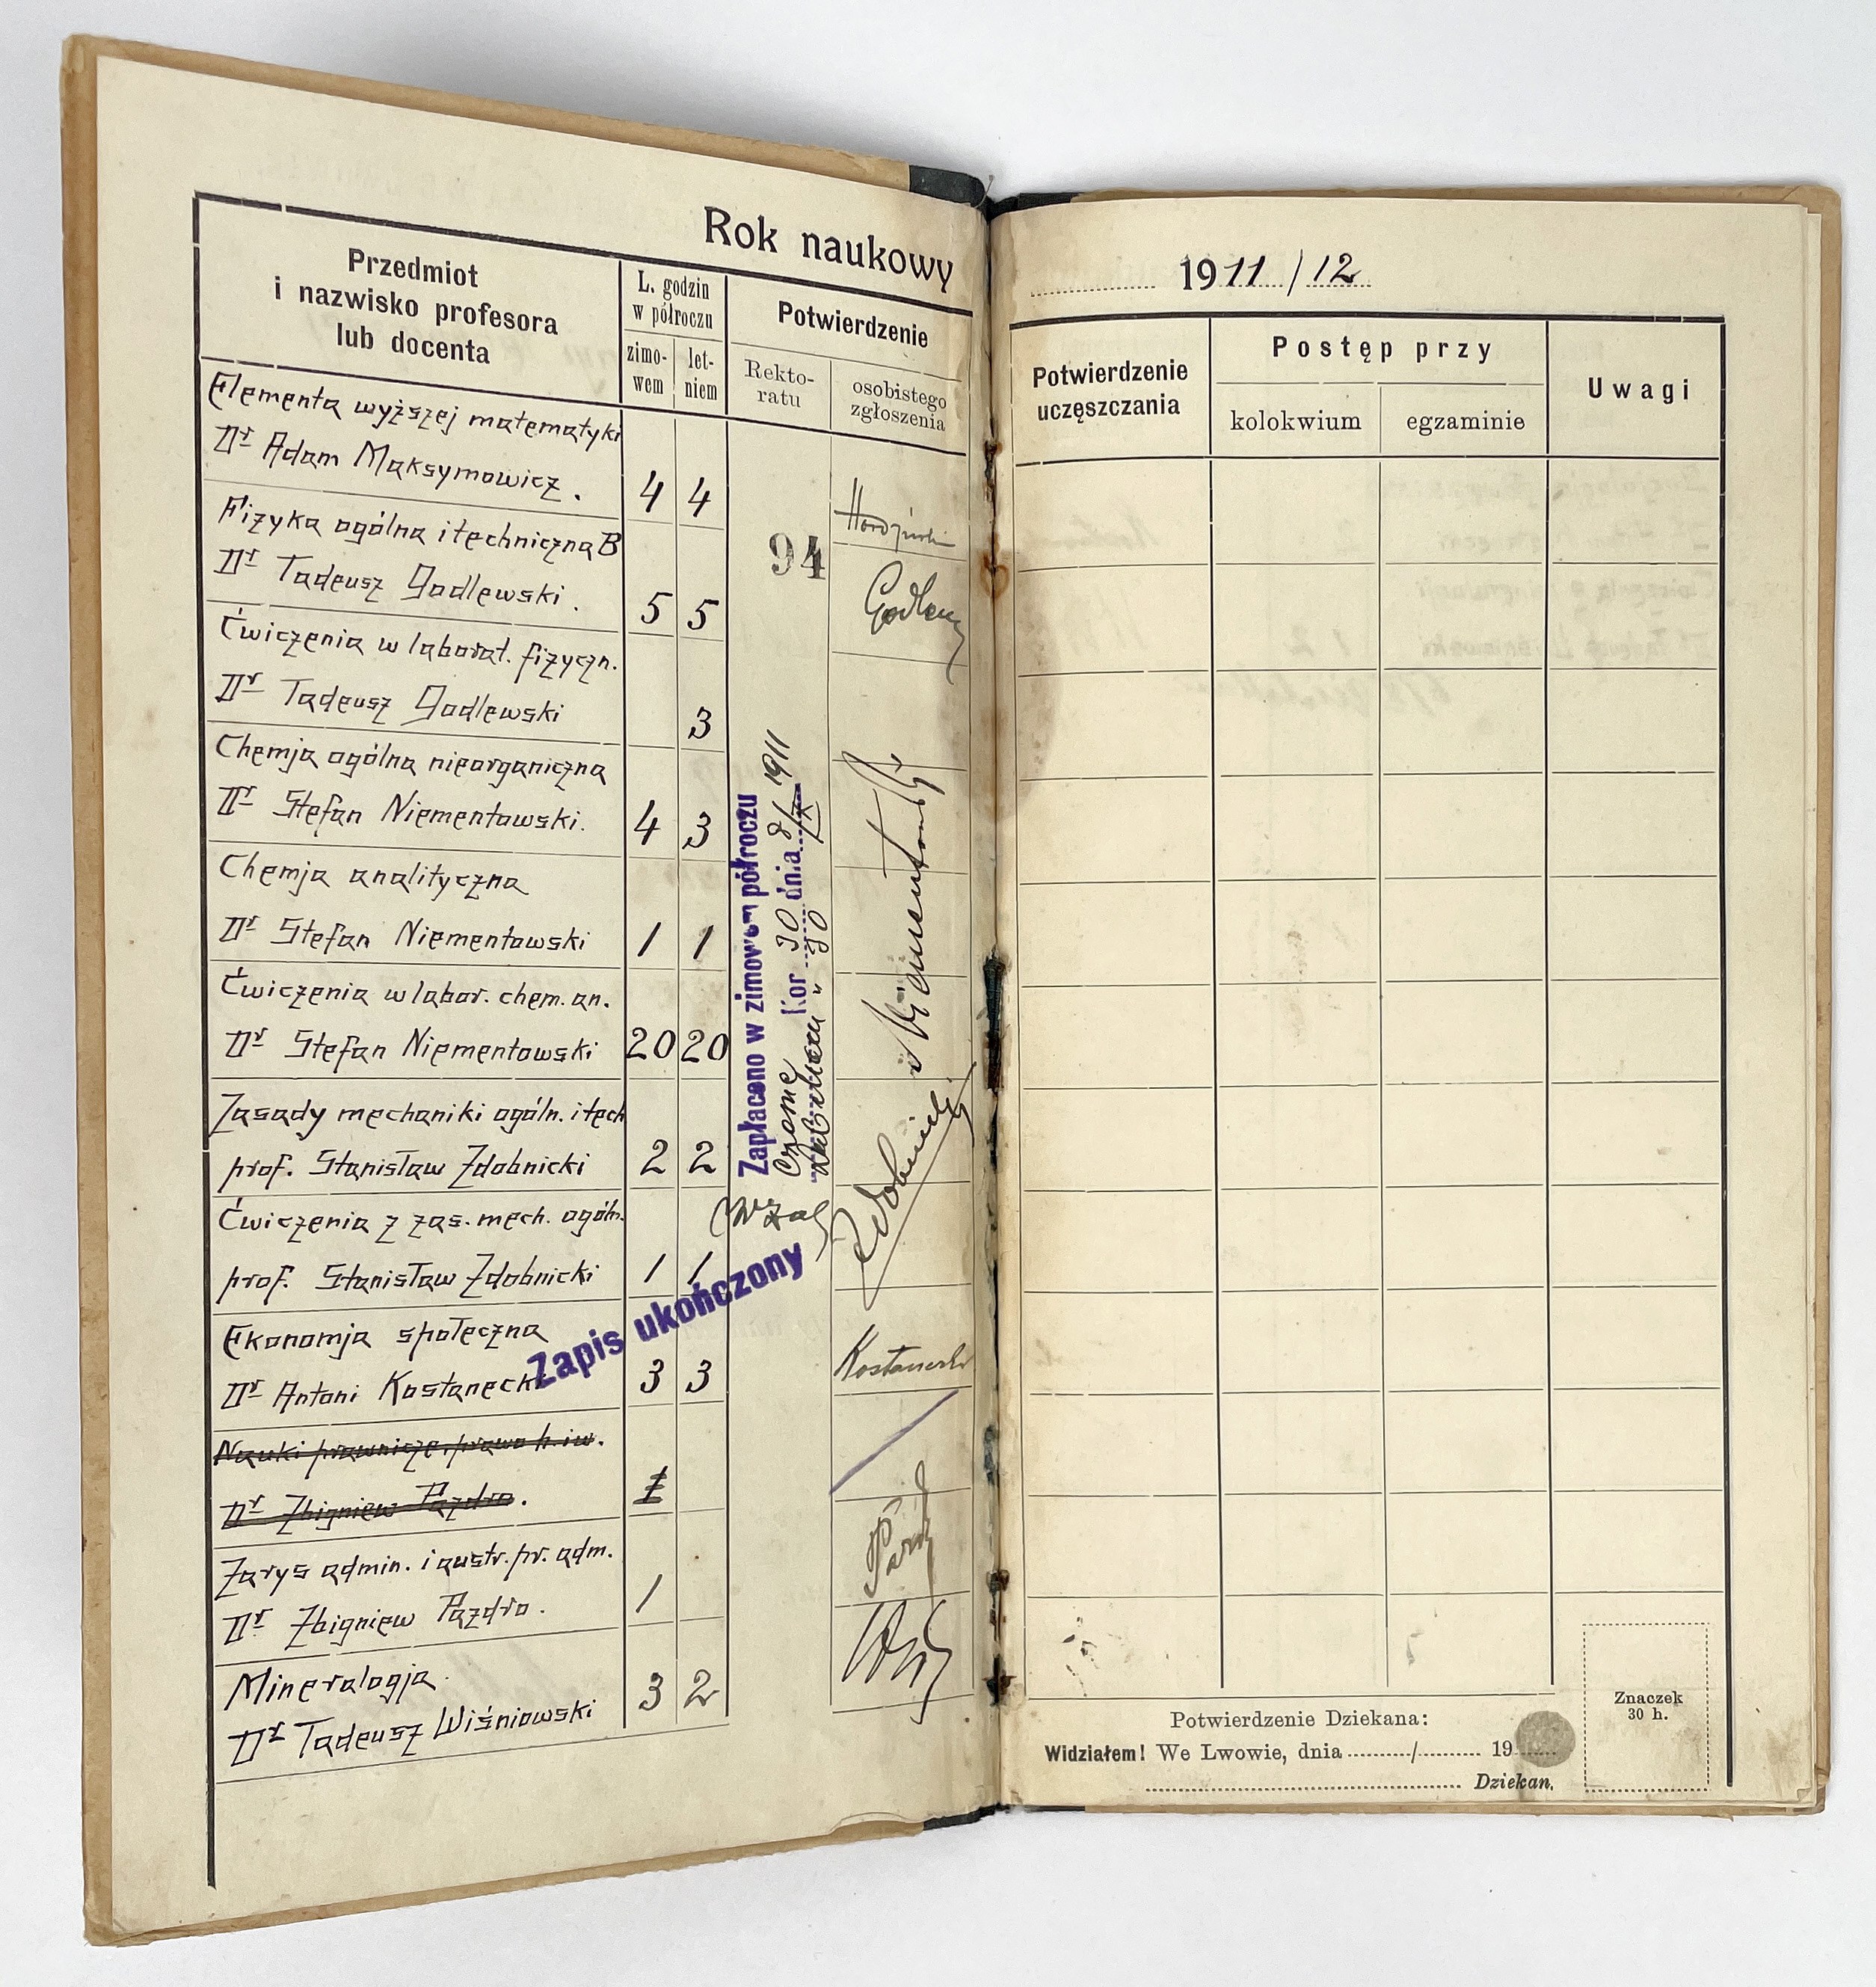 Rok naukowy
Przedmiot
i nazwisko profesora
lub docenta
L. godzin
w półroczu
zimo-
wem
let-
niem
Potwierdzenie
Rekto-
ratu
osobistego
zgłoszenia
Elementa wyższej matematyki
Dr Adam Maksymowicz.
4 4
Fizyka ogólna i techniczna B
Dr Tadeusz Godlewski.
5 5
94
Godlew
Ćwiczenia w laborat. fizyczn.
Dr Tadeusz Godlewski
3
Chemja ogólna nieorganiczna
Dr Stefan Niementowski.
4 3
Chemja analityczna
Dr Stefan Niementowski
1 1
Ćwiczenia w labor. chem. an.
Dr Stefan Niementowski
20 20
Niementowski
Zapłacono w zimowem półroczu
Czesne Kor 30 dnia 8/IX 1911
Zasady mechaniki ogóln. i tech
prof. Stanisław Zdobnicki
2 2
Ćwiczenia z zas. mech. ogóln.
prof. Stanisław Zdobnicki
1 1
Zdobnicki
Zapis ukończony
Ekonomja społeczna
Dr Antoni Kostanecki
3 3
Kostanecki
Nauki prawnicze, prawo h. i w.
Dr Zbigniew Pazdro.
Zarys admin. i austr. pr. adm.
Dr Zbigniew Pazdro.
1
Mineralogja
Dr Tadeusz Wiśniowski
3 2
1911/12
Potwierdzenie
uczęszczania
Postęp przy
kolokwium
egzaminie
Uwagi
Potwierdzenie Dziekana:
Widziałem! We Lwowie, dnia ........../.......... 19
Dziekan.
Znaczek
30 h.